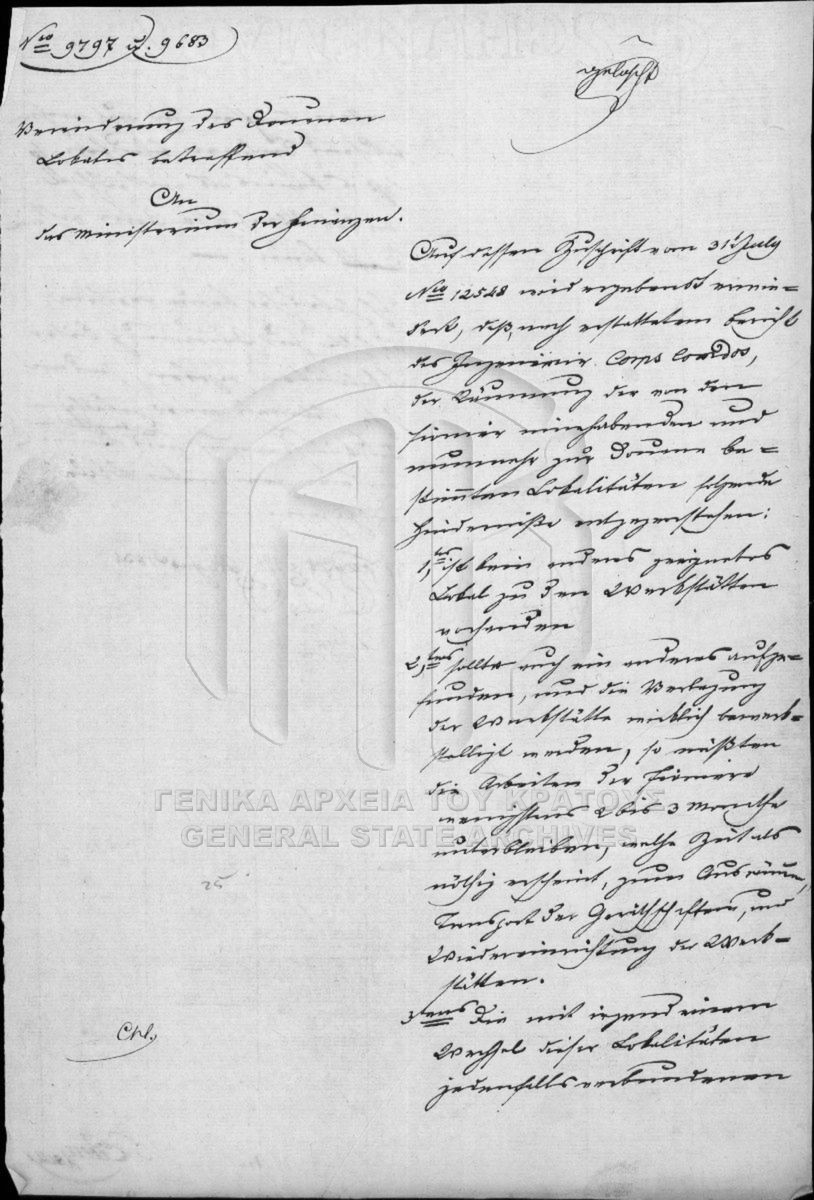 Nro 9797 u. 9683
gelöscht
Veränderung des Douanen
Lokales betreffend
An
das Ministerium der Finanzen.
Auf dessen Zuschrift vom 31t July
Nro 12548 wird ergebenst erwie=
dert, daß nach erstattetem Bericht
des Ingenieur Corps Comdos,
der Räumung der von den
Pionier innehabenden und
nunmehr zur Douane be=
stimmten Lokalitäten folgende
Hinderniße entgegenstehen:
1,tes ist kein anderes geeignetes
Lokal zu den Werkstätten
vorhanden
2,tens sollte auch ein anderes aufge=
funden, und die Verlegung
der Werkstätte wirklich bewerk=
stelligt werden, so müßten
die Arbeiten der Pioniere
wenigstens 2 bis 3 Monathe
unterbleiben, welche Zeit als
nöthig erscheint, zum Ausräumen,
Transport der Geräthschaften, und
Wiedereinrichtung der Werk=
stätten.
3tens Die mit irgend einem
Wechsel dieser Lokalitäten
jedenfalls verbundenen
25
ΓΕΝΙΚΑ ΑΡΧΕΙΑ ΤΟΥ ΚΡΑΤΟΥΣ
GENERAL STATE ARCHIVES